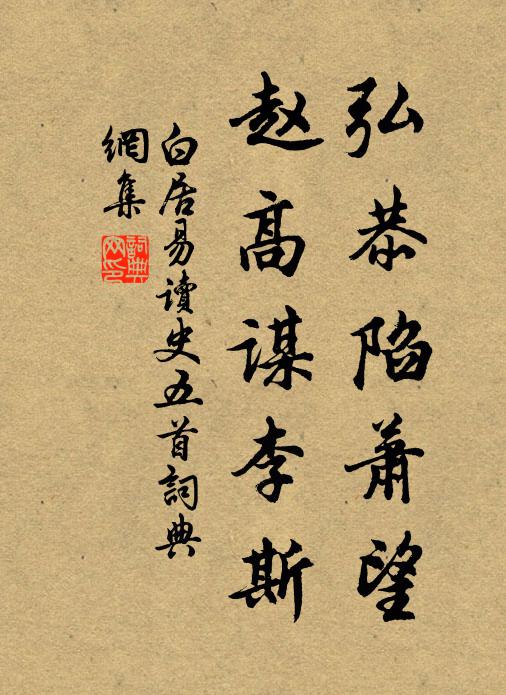 弘恭陷萧望
赵高谋李斯
白居易讀史五首詞典
網集
詞典网印